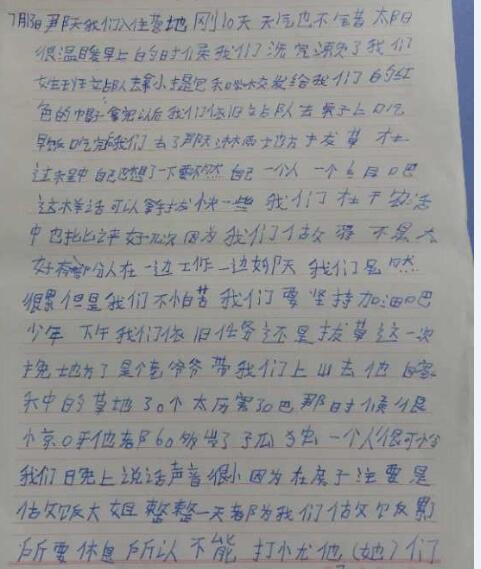 7月3日那天我们入住营地刚10天 天气也不官苦 太阳
很温暖早上的时候我们洗完漱了我们
女生主任站队去拿小提包和水交发给我们的红
色的帽子拿完以后我们依旧站队去桌子上吃
早饭吃完后我们去了那 地方去拔草 在
这未里自己想了一下要不然自己一个人一个点目吧
这样话可以拿拔快一些 我们在干的活
中也批评好几次因为我们做的不是太
好有部分人在一边工作一边聊天 我们虽然
很累但是我们不怕苦我们要坚持加油吧
少年 下午我们依旧任务还是拔草这一次
换地方了是个老爷爷带我们上山去他
禾中的草地了 太厉害了吧那时候很
小京 他老 60 岁了 一个人很可怜
我们日晚上说话声音很小因为在房子注要是
做饭大姐整整一天都为我们做饭累
所要休息所以不能打扰他（她）们